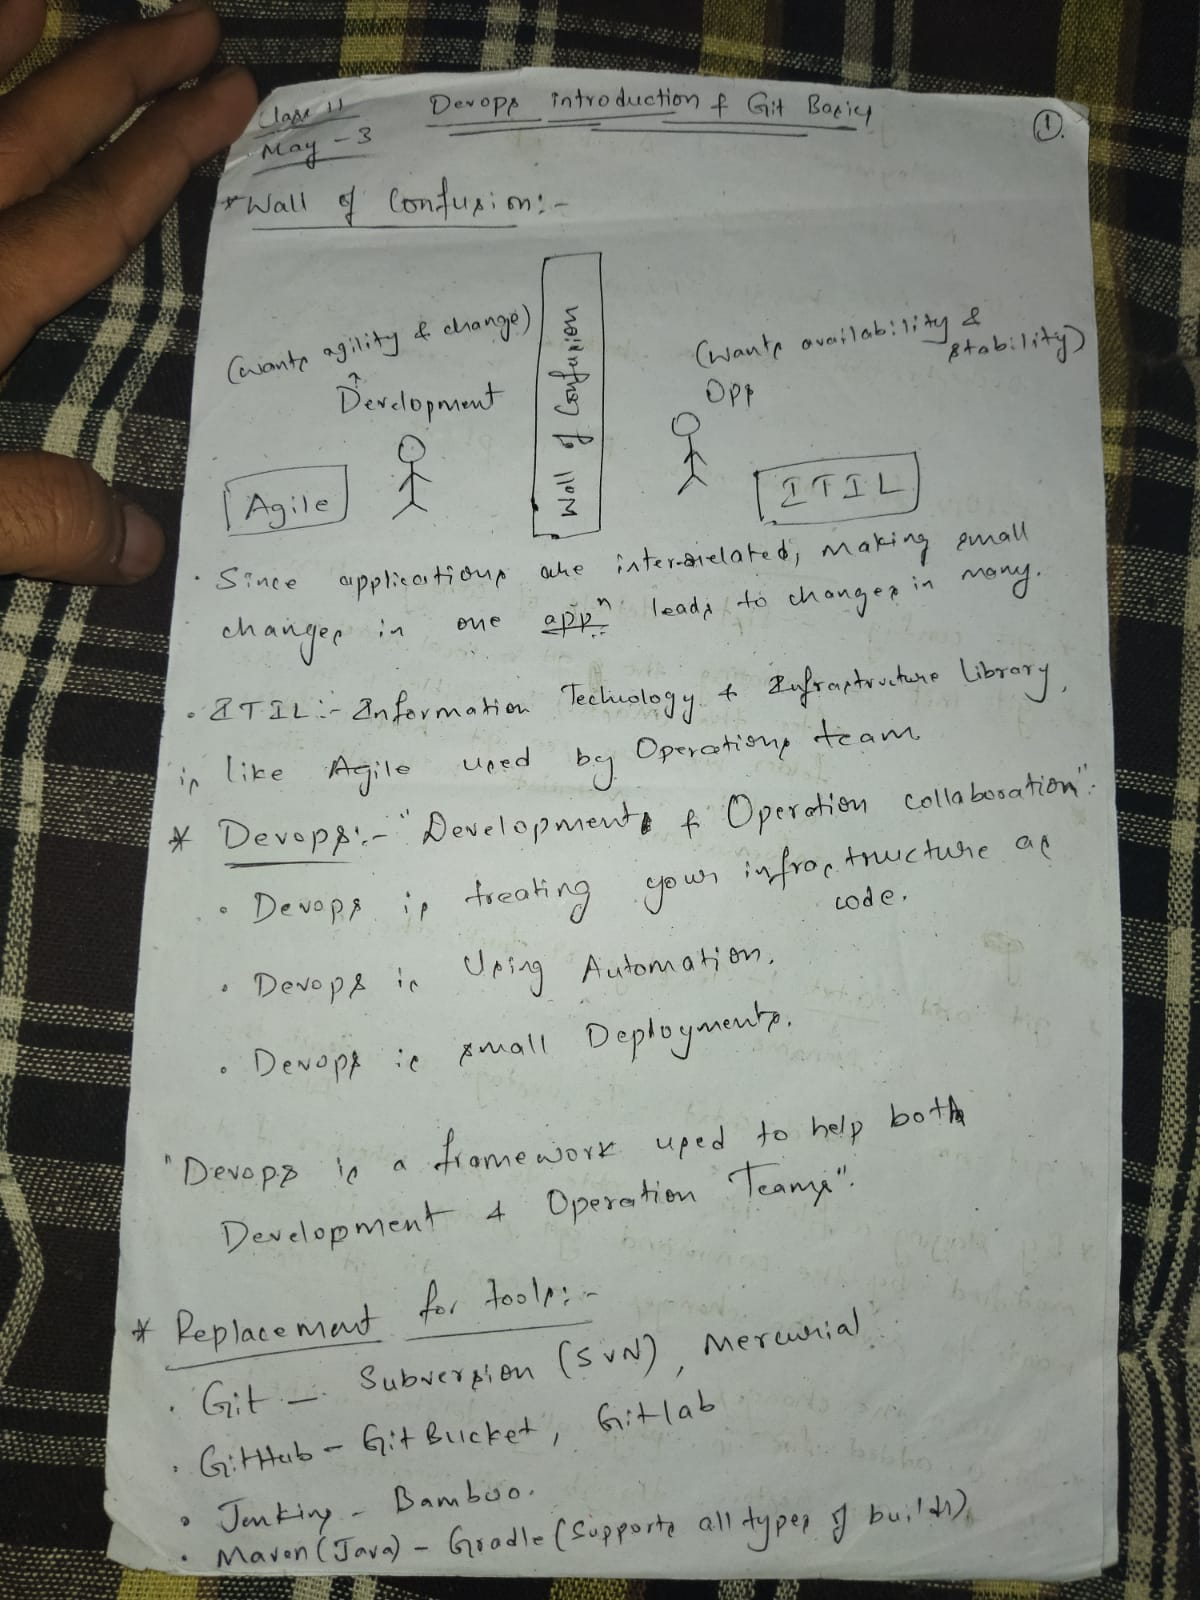 Class 11
May - 3
Devops introduction & Git Basics
1.
* Wall of Confusion:-
(wants agility & change)
Development
Agile
Wall of Confusion
(wants availability &
stability)
Ops
ITIL
· Since applications are inter-related, making small
changes in one appn leads to changes in many.
· ITIL:- Information Technology & Infrastructure Library,
is like Agile used by Operations team.
* Devops:- "Development & Operation collaboration".
· Devops is treating your infrastructure as
code.
· Devops is Using Automation.
· Devops is small Deployments.
"Devops is a framework used to help both
Development & Operation Teams".
* Replacement for tools:-
· Git - Subversion (SVN), Mercurial
· GitHub - Git Bucket, Gitlab
· Jenkins - Bamboo.
· Maven (Java) - Gradle (Supports all types of builds)